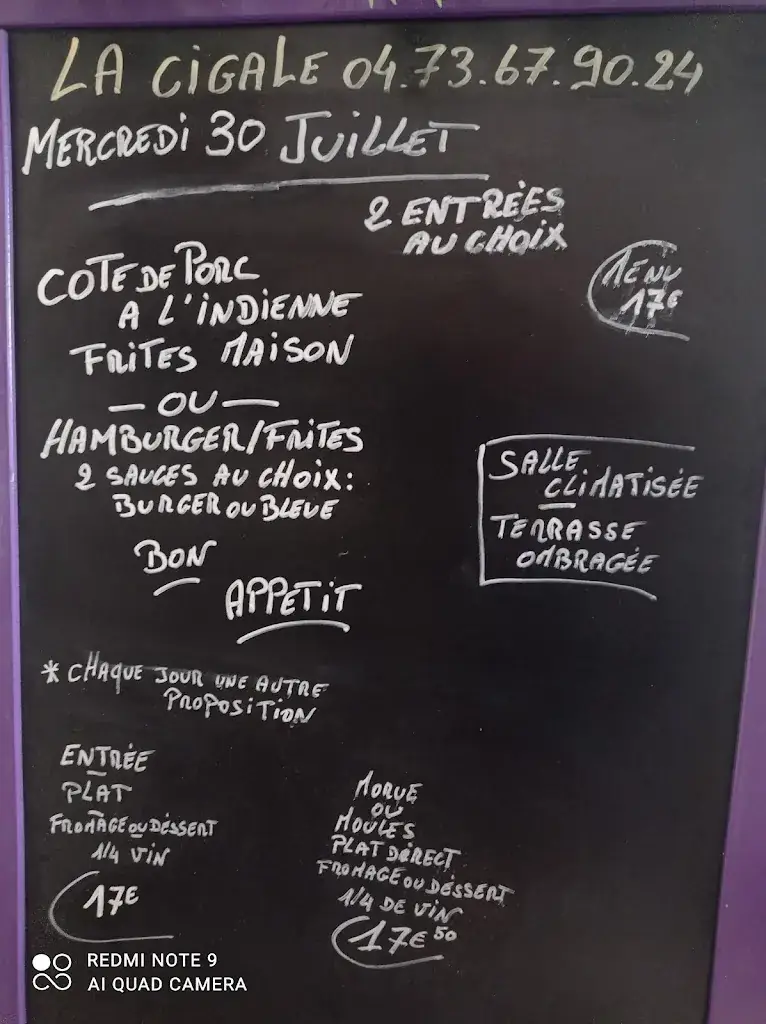 LA CIGALE 04.73.67.90.24
MERCREDI 30 JUILLET
2 ENTRÉES
AU CHOIX
COTE DE PORC
A L'INDIENNE
FRITES MAISON
MENU
17€
— OU —
HAMBURGER/FRITES
2 SAUCES AU CHOIX:
BURGER OU BLEUE
SALLE
CLIMATISÉE
TERRASSE
OMBRAGÉE
BON
APPETIT
* CHAQUE JOUR UNE AUTRE
PROPOSITION
ENTRÉE
PLAT
FROMAGE OU DÉSSERT
1/4 VIN
17€
MORUE
OU
MOULES
PLAT DIRECT
FROMAGE OU DÉSSERT
1/4 DE VIN
17€50
REDMI NOTE 9
AI QUAD CAMERA